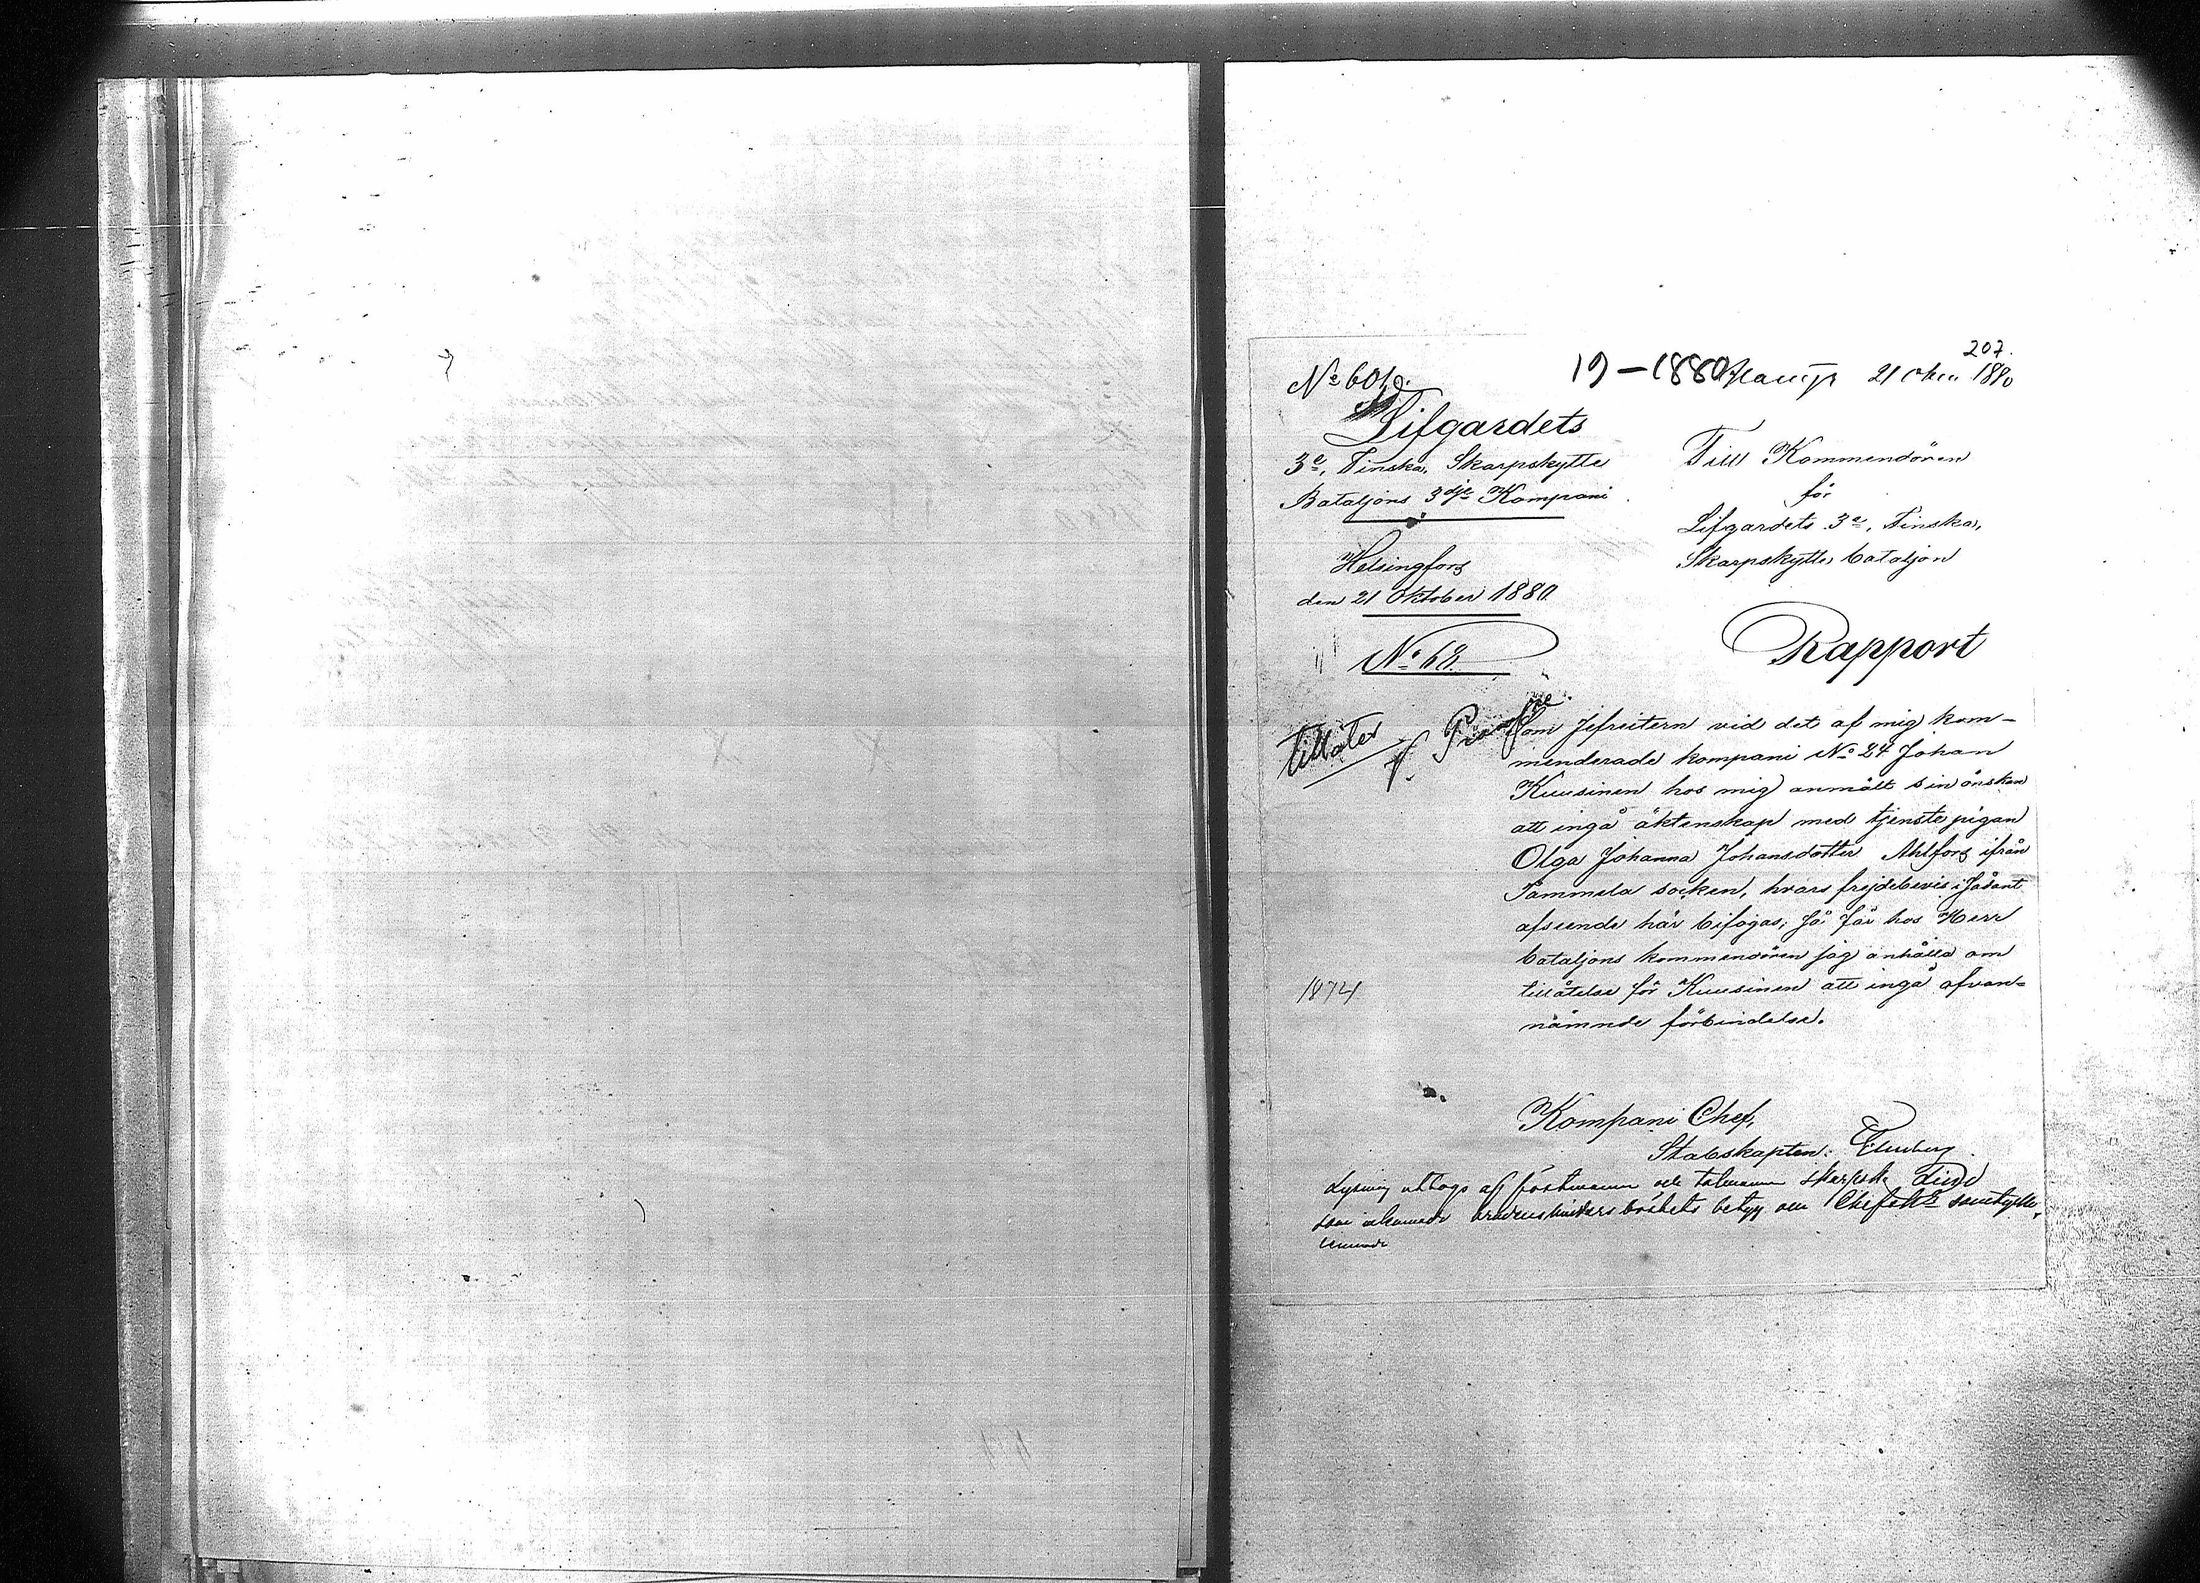 207.
19–1880 21 1880
No 601
Lifgardets
3e, Finska, Skarpskytte
Bataljons 3dje Kompani
Helsingfors
den 21 Oktober 1880.
No 68.
Till Kommendören
för
Lifgardets 3e, Finska,
Skarpskytte, bataljon
Rapport
tillåtes
Som Jefreitern vid det af mig kom-
menderade kompani No 24 Johan
Kuusinen hos mig anmält sin önskan
att ingå äktenskap med tjenstepigan
Olga Johanna Johansdotter Ahlfors ifrån
Tammela socken, hvars frejdebevis i sådant
afseende här bifogas; så får hos Herr
bataljons kommendören jag anhålla om
tillåtelse för Kuusinen att ingå ofvan-
nämnde förbindelse.
1874
Kompani Chef,
Stabskapten:
Lysning uttogs af och talmannen
som betyg om samtycke,